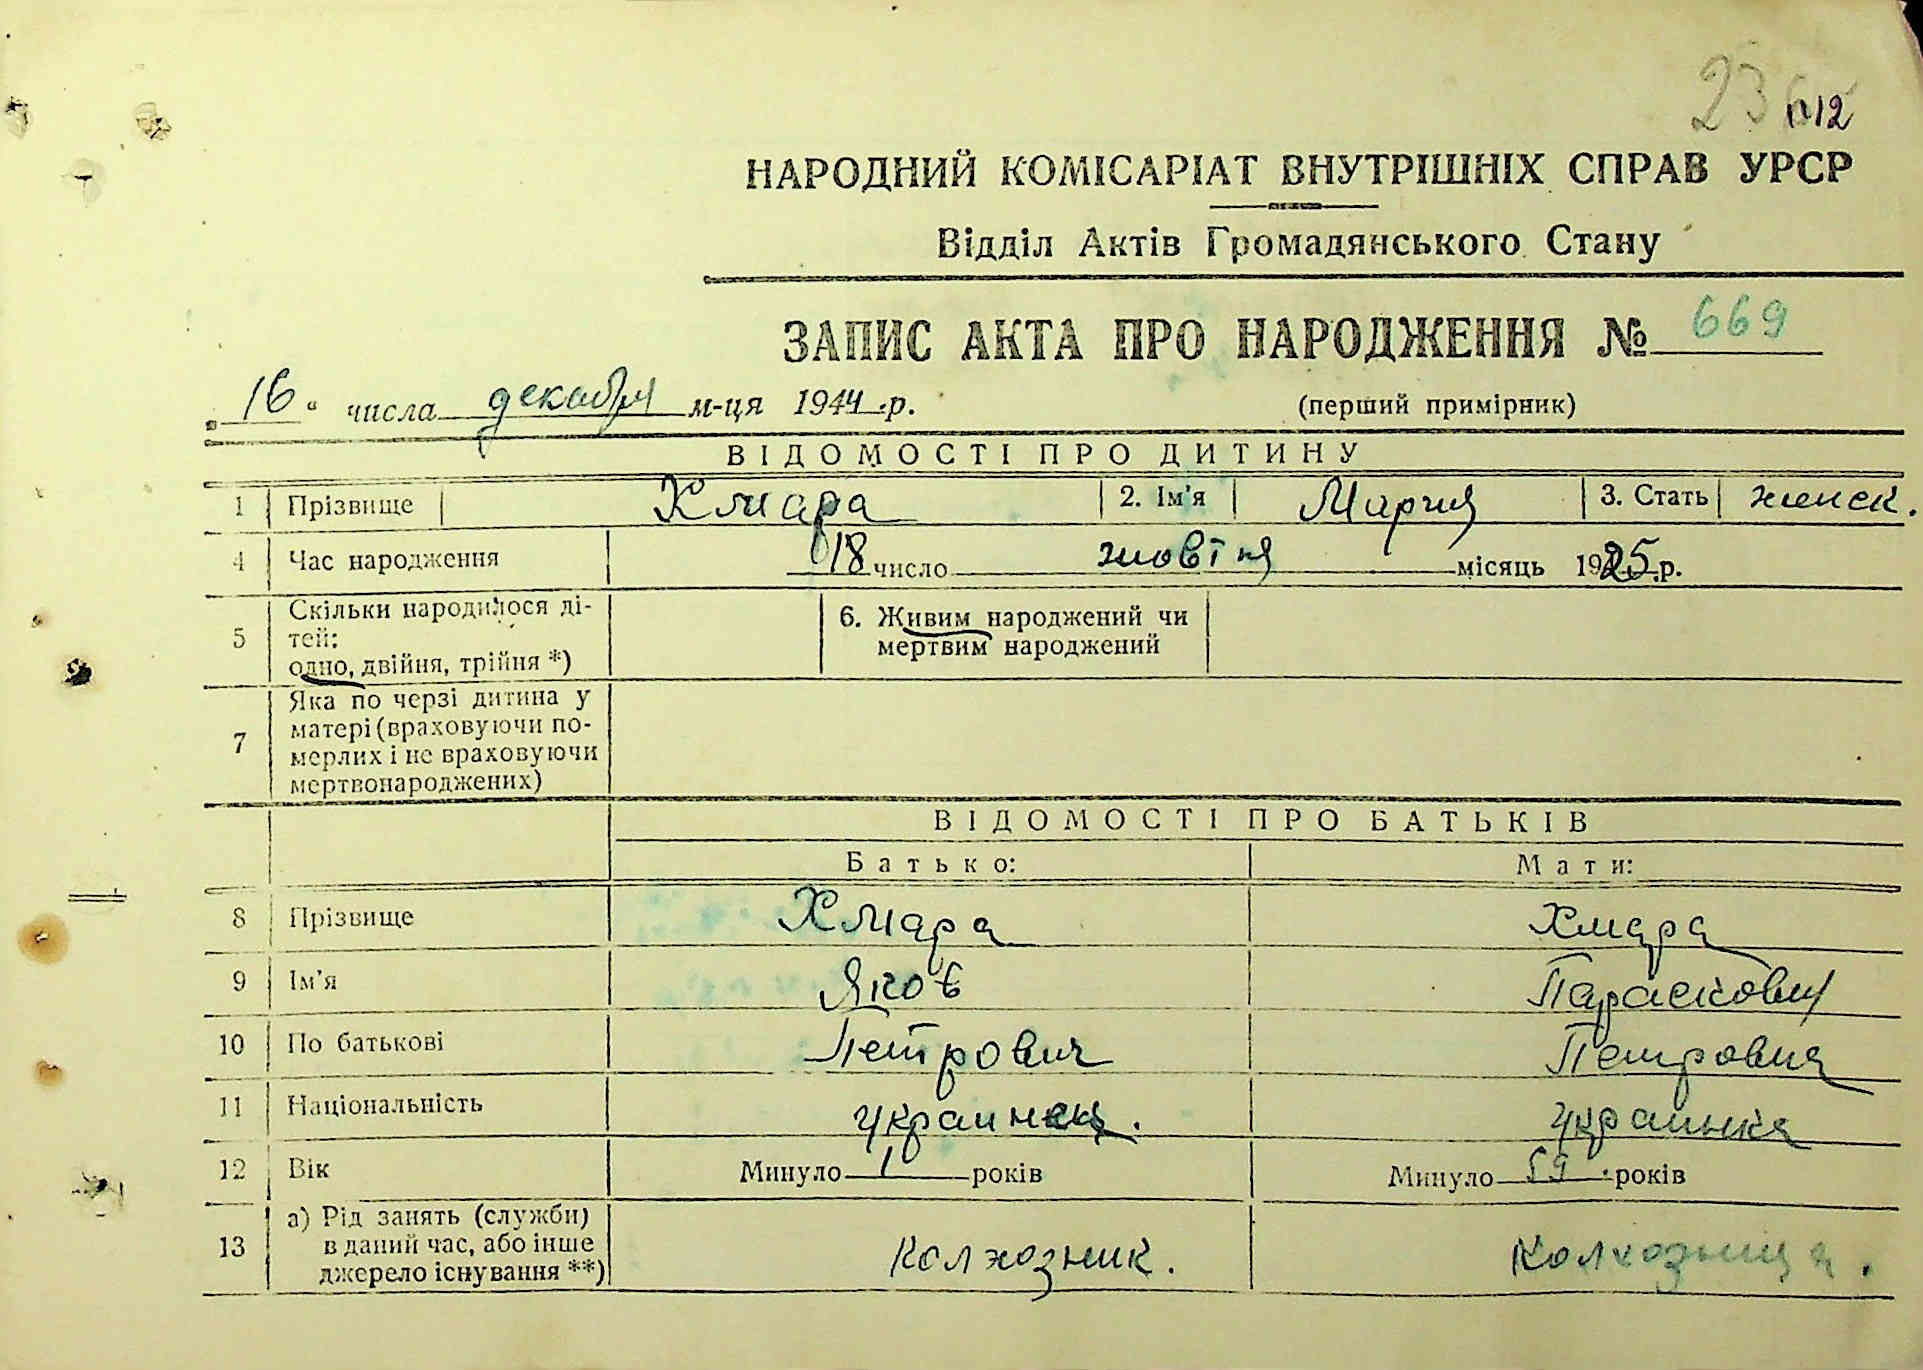 23
1112
НАРОДНИЙ КОМІСАРІАТ ВНУТРІШНІХ СПРАВ УРСР
Відділ Актів Громадянського Стану
ЗАПИС АКТА ПРО НАРОДЖЕННЯ № 669
„16" числа декабря м-ця 1944 р. (перший примірник)
ВІДОМОСТІ ПРО ДИТИНУ
1 Прізвище Хмара 2. Ім'я Мария 3. Стать женск.
4 Час народження 18 число жовтня місяць 1925 р.
5 Скільки народилося ді-
тей:
одно, двійня, трійня *)
6. Живим народжений чи
мертвим народжений
7 Яка по черзі дитина у
матері (враховуючи по-
мерлих і не враховуючи
мертвонароджених)
ВІДОМОСТІ ПРО БАТЬКІВ
Батько: Мати:
8 Прізвище Хмара Хмара
9 Ім'я Яков Парасковия
10 По батькові Петрович Петровна
11 Національність украинец. украинка
12 Вік Минуло років Минуло 59 років
13 а) Рід занять (служби)
в даний час, або інше
джерело існування **)
колхозник. колхозница.